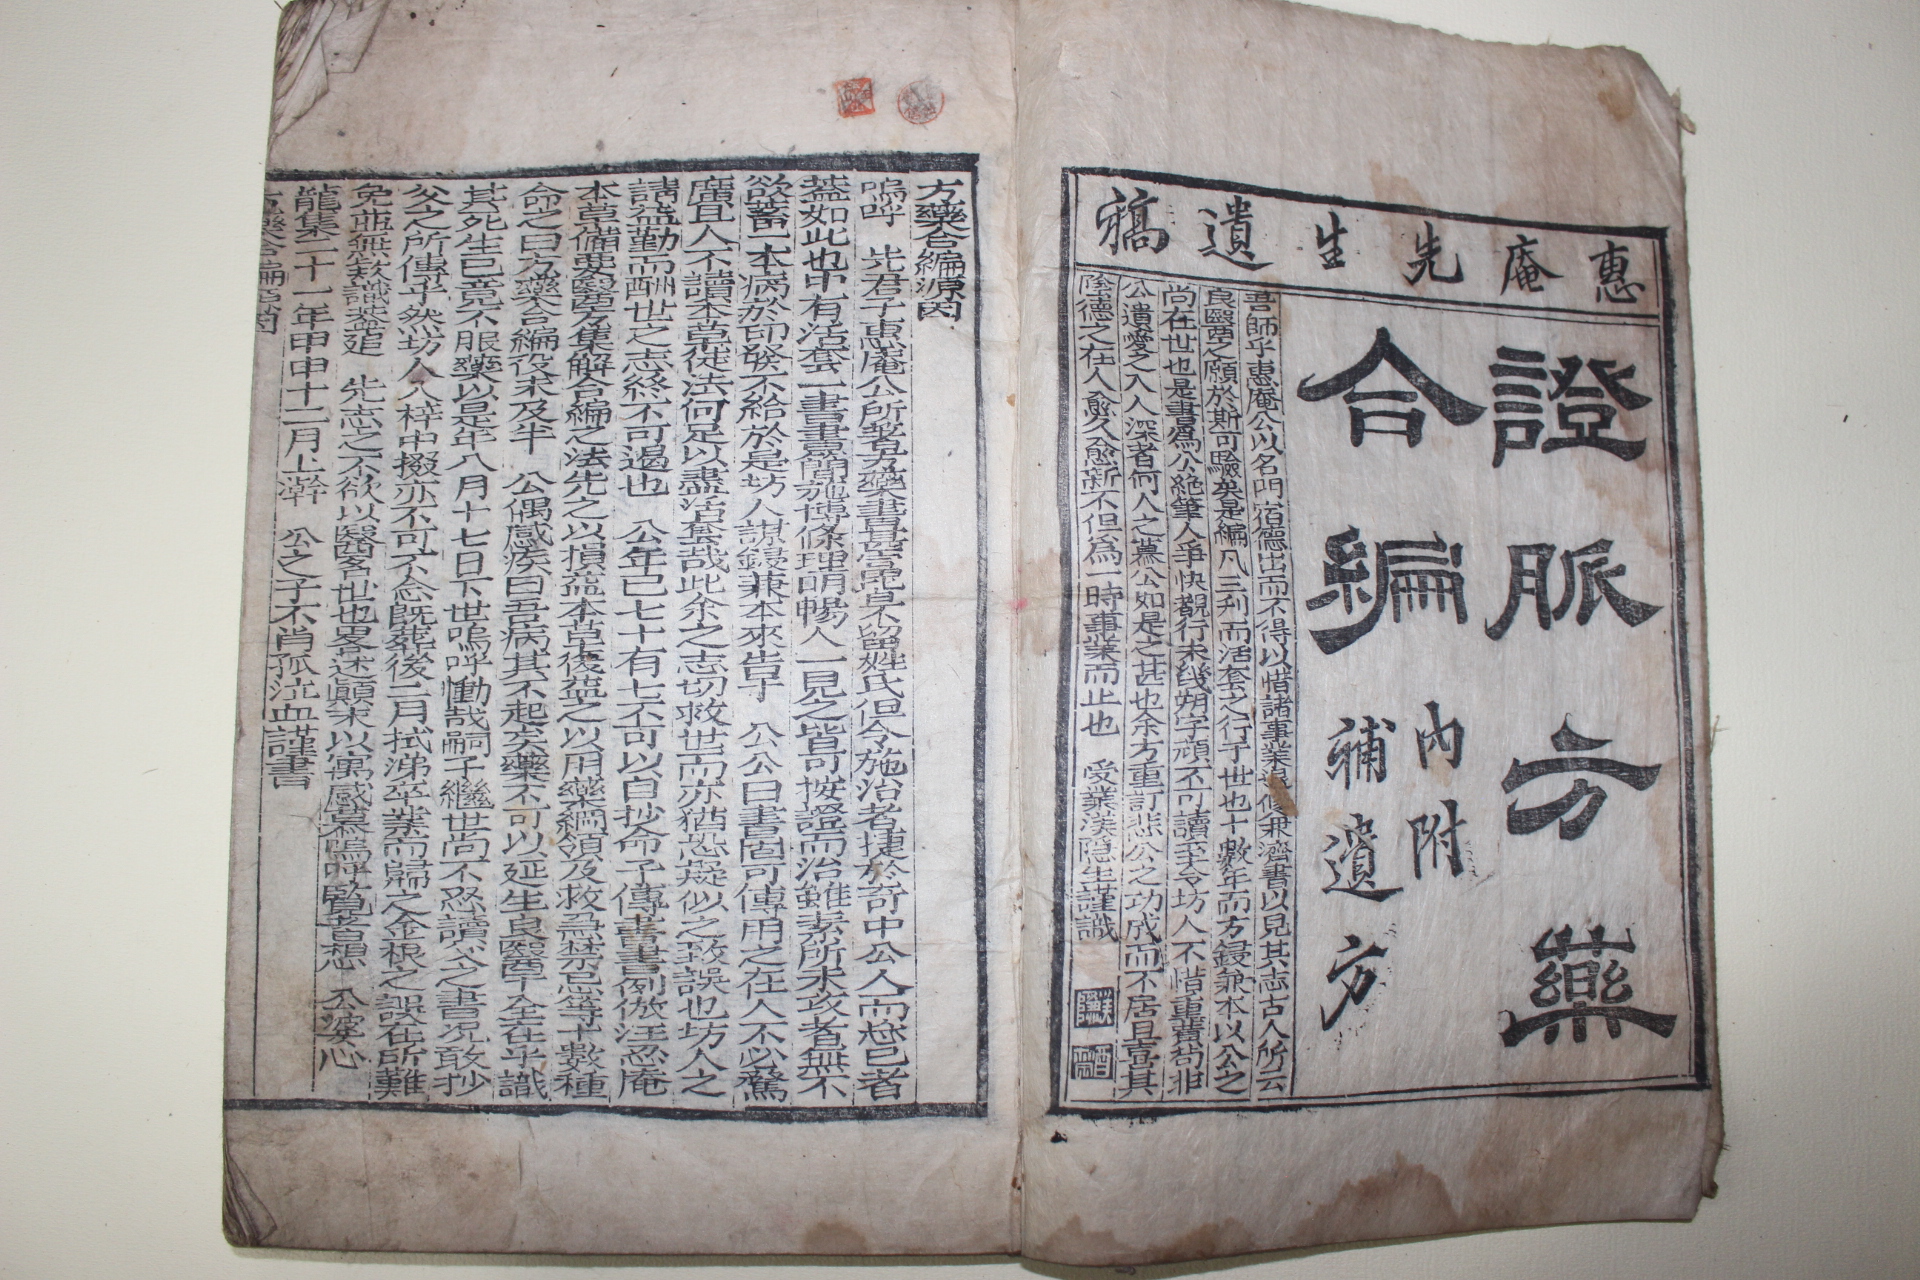 惠庵先生遺稿
證脈方藥
合編
內附
補遺方
吾師乎惠庵公以名門宿德出而不得以惜諸事業退修兼濟書以見其志古人所云
良醫之願於斯可驗矣是編凡三刋而活套之行于世也十數年而方錄兼本以公之
尚在世也是書爲公絶筆人爭快覩行未幾朔字頑不可讀至今坊人不惜重貲苟非
公遺愛之入人深者何人之慕公如是之甚也余方重訂悲公之功成而不居且喜其
陰德之在人愈久愈新不但爲一時事業而止也 受業漢隱生謹識
方藥合編源因
嗚呼 先君子惠庵公所著方藥書甚富毘卓不留姓氏但令施治者捷於奇中公人而忘己者
蓋如此也中有活套一書書簡施博條理明暢人一見之皆可按證而治雖素所未亥者無不
欲蓄一本病於印發不給於是坊人謀鋟兼本來告于 公公曰書固可傳用之在人不必驚
廣且人不讀本草徒法何足以盡活套哉此余之志切救世而亦猶恐疑似之致誤也坊人之
請益勤而酬世之志終不可遏也 公年已七十有七不可以自抄命子傳書書例倣汪忍庵
本草備要醫方集解合編之法先之以損益本草後益之以用藥綱領及救急禁忌等十數種
命之曰方藥合編役未及半 公偶感疾曰吾病其不起矣藥不可以延生良醫乎全在乎識
其死生已竟不服藥以是年八月十七日下世嗚呼慟哉嗣子繼世尚不忍讀公之書况敢抄
父之所傳乎然坊人入梓中掇亦不可不念既葬後二月拭涕卒業而歸之金根之誤在所難
免亟無赦識益追 先志之不欲以醫名世也畧述顚末以寓感慕嗚呼覽者想 公婆心
龍集二十一年甲申十二月上澣 公之子不肖孤泣血謹書
方藥合編源因